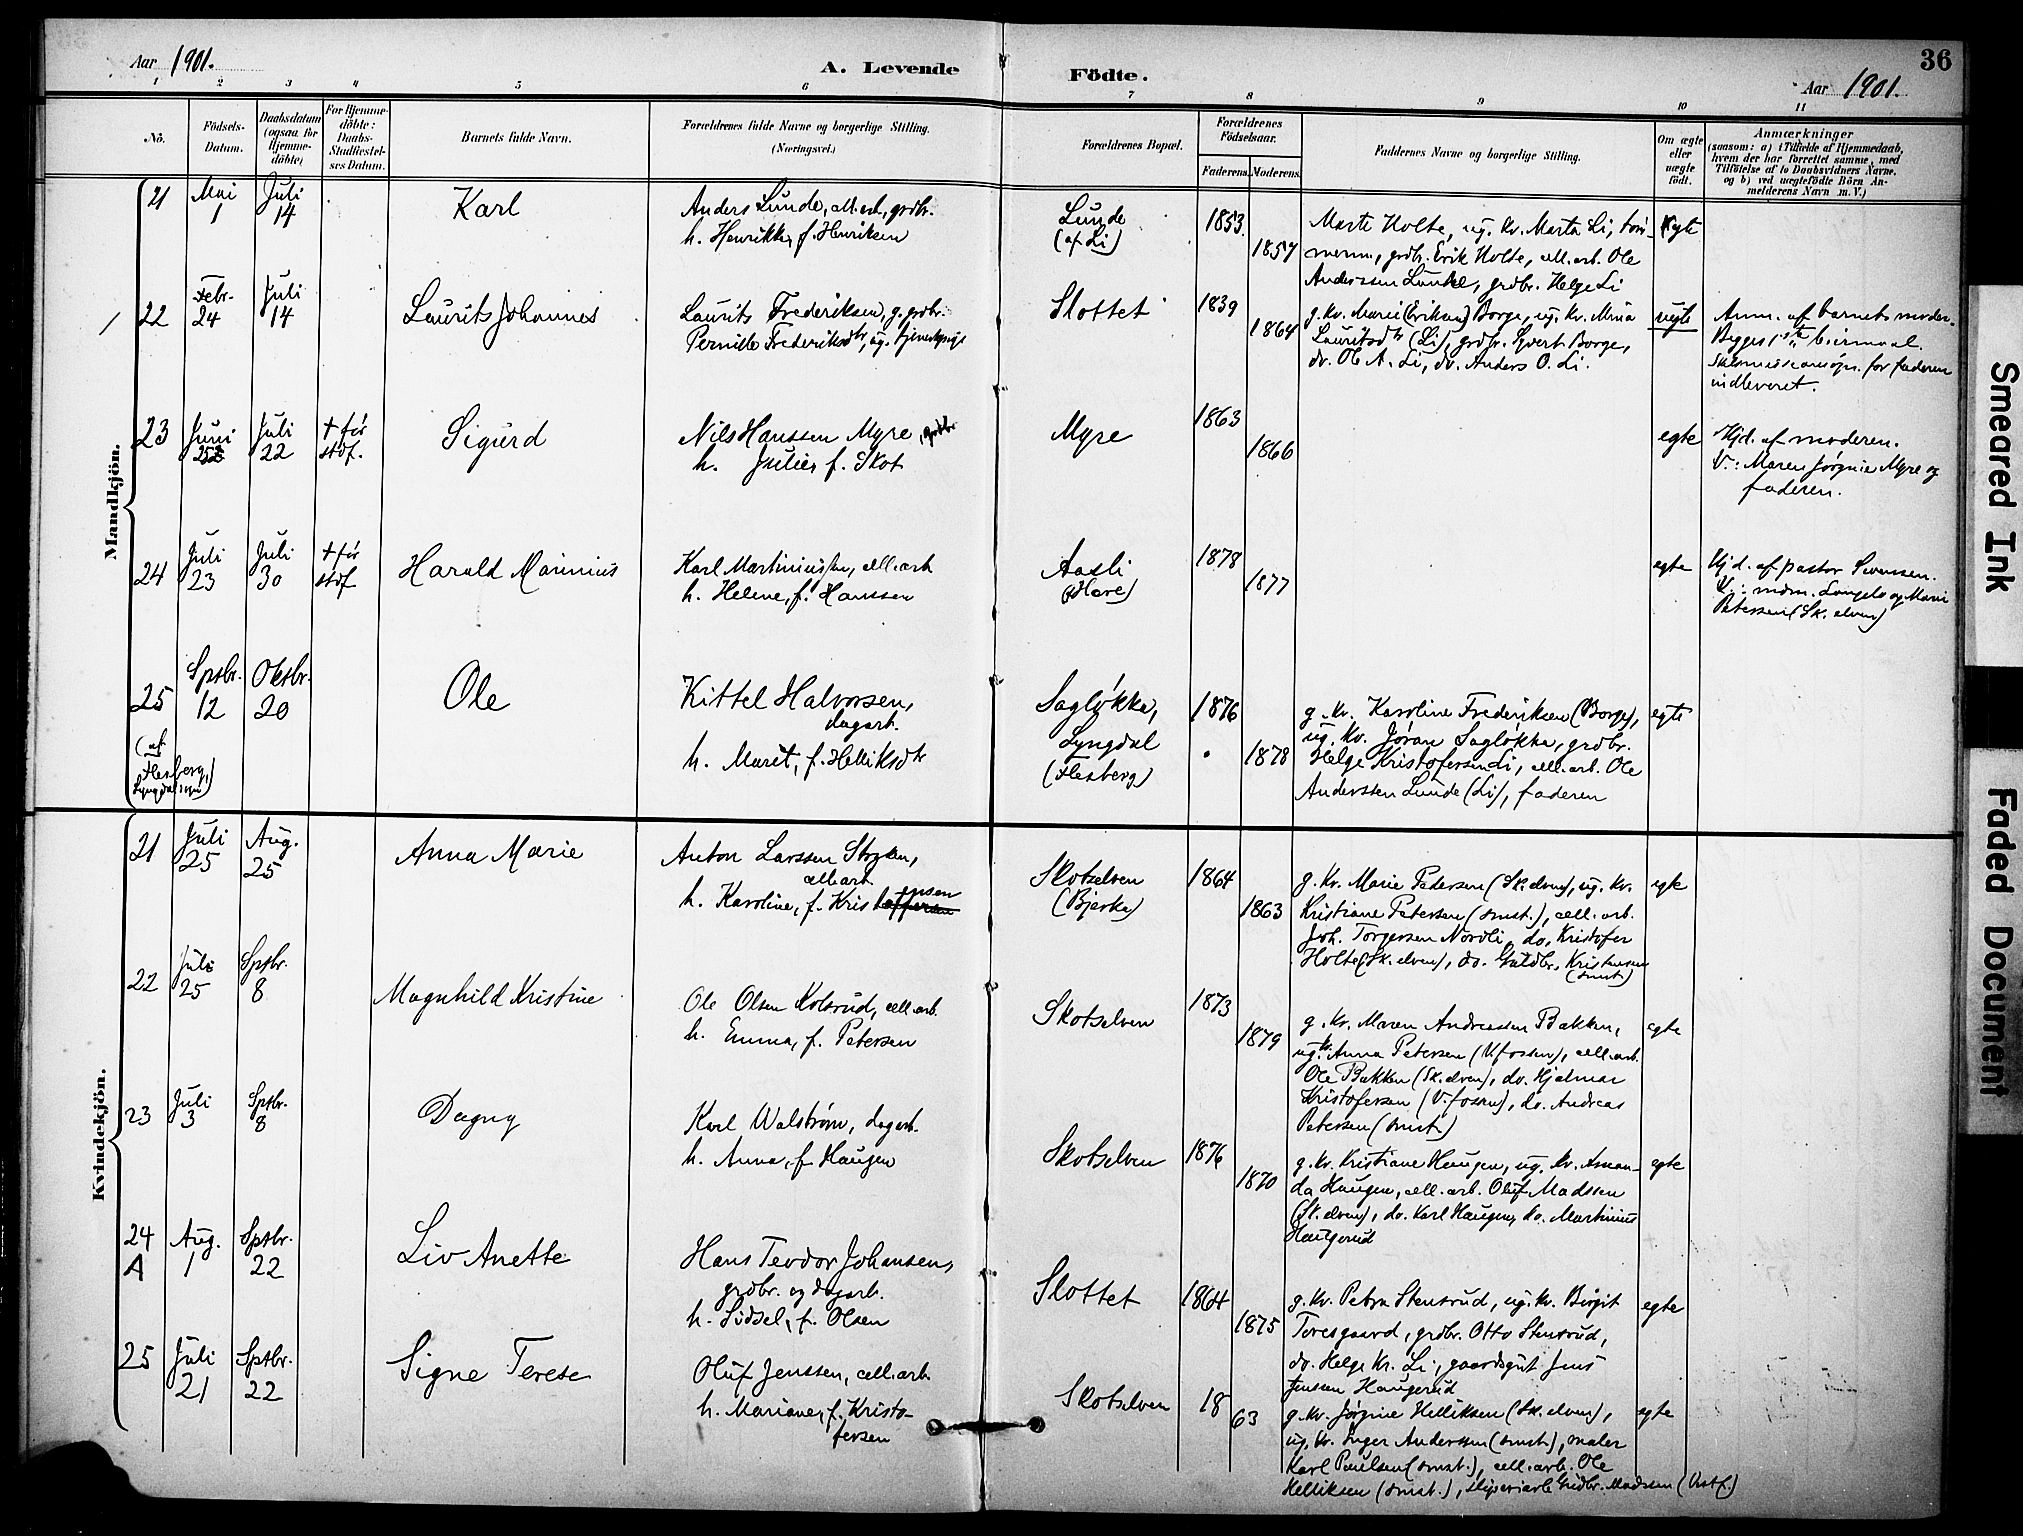 36
Aar 1901. A. Levende Födte. Aar 1901.
1 2 3 4 5 6 7 8 9 10 11
No.
Födsels-
Datum.
Daabsdatum
(ogsaa for
Hjemme-
döbte)
For Hjemme-
döbte:
Daabs-
Stadfæstel-
ses Datum.
Barnets fulde Navn.
Forældrenes fulde Navne og borgerlige Stilling.
(Næringsvei.)
Forældrenes Bopæl.
Forældrenes
Födselsaar.
Faderens. Moderens.
Faddernes Navne og borgerlige Stilling.
Om ægte
eller
uægte
födt.
Anmærkninger
(saasom: a) i Tilfælde af Hjemmedaab,
hvem der har forrettet samme, med
Tilföielse af to Daabsvidners Navne,
og b) ved uægtefödte Börn An-
melderens Navn m. V.)
Mandkjön.
21 Mai 1 Juli 14 Karl
Anders Lunde, cell.arb., grdbr.
h. Henrikke, f. Henriksen
Lunde
(af Li)
1853.
1857
Marte Holte, ug. kv. Marta Li, töm-
merm., grdbr. Erik Holte, cell. arb. Ole
Anderssen Lunde, grdbr. Helge Li
egte
22 Febr. 24 Juli 14 Laurits Johannes
Laurits Frederiksen, g. grdbr.
Pernille Frederiksdtr, ug. tjenestepige
Slottet
1839
1864
g. kv. Marie (Eriksen) Borge, ug. kv. Mina
Lauritsdtr (Li), grdbr. Syvert Borge,
do. Ole A. Li, do. Anders O. Li.
uegte
Anm. af barnets moder.
Begges 1ste leiermaal.
indleveret.
23 Juni 25 Juli 22 + för stdf. Sigurd
Nils Hanssen Myre, grdbr.
h. Julie, f. Skot
Myre
1863
1866
egte
Hjd. af moderen.
V.: Maren Jørgine Myre og
faderen.
24 Juli 23 Juli 30 + för stdf Harald Marinius
Karl Martiniussen, cell. arb
h. Helene, f. Hanssen
Aasli
(Hære)
1878
1877
egte
Hjd. af pastor Svenssen.
V.: mdm. Langelo og Marie
Petersen (Sk.elven)
25 Sptbr. 12 Oktbr. 20 Ole
(af
Flesberg,
Lyngdal sogn)
Kittel Halvorsen,
dagarb.
h. Marit, f. Helliksdtr
Sagløkka,
Lyngdal
(Flesberg)
1876
1878
g. kv. Karoline Frederiksen (Borge),
ug. kv. Jøran Sagløkka, grdbr.
Helge Kristofersen Li, cell. arb. Ole
Anderssen Lunde (Li), faderen
egte
Kvindekjön.
21 Juli 25 Aug. 25 Anna Marie
Anton Larssen Stryken,
cell. arb
h. Karoline, f. Kristensen
Skotselven
(Bjerke)
1864
1863
g. kv. Marie Petersen (Sk.elven), ug. kv.
Kristiane Petersen (smst.), cell. arb.
Joh. Torgersen Nordli, do. Kristofer
Holte (Sk.elven), do. Guldbr. Kristensen
(smst.)
egte
22 Juli 25 Sptbr. 8 Magnhild Kristine
Ole Olsen Kolsrud, cell. arb.
h. Emma, f. Petersen
Skotselven
1873
1879
g. kv. Maren Andreassen Bakken,
ug. kv. Anna Petersen (V.fossen), cell. arb.
Ole Bakken (Sk.elven), do. Hjalmar
Kristofersen (V.fossen), do. Andreas
Petersen (smst.)
egte
23 Juli 3 Sptbr. 8 Dagny
Karl Walstrøm, dagarb.
h. Anna, f. Haugen
Skotselven
1876
1870
g. kv. Kristiane Haugen, ug. kv. Aman-
da Haugen, cell. arb. Oluf Madssen
(Sk.elven), do. Karl Haugen, do. Martinius
Haugerud
egte
24 A Aug. 1 Sptbr. 22 Liv Anette
Hans Teodor Johansen,
grdbr. og dagarb.
h. Sidsel, f. Olsen
Slottet
1864
1875
g. kv. Petra Stensrud, ug. kv. Birgit
Toresgaard, grdbr. Otto Stensrud,
do. Helge Kr. Li, gaardsgut Jens
Jenssen Haugerud
egte
25 Juli 21 Sptbr. 22 Signe Terese
Oluf Jenssen, cell. arb
h. Mariane, f. Kristo-
fersen
Skotselven
18
63
g. kv. Jørgine Helliksen (Sk.elven),
ug. kv. Inger Anderssen (smst.), maler
Karl Paulsen (smst.), cell. arb. Ole
Helliksen (smst.), sliperiarb. Gudbr. Madssen (Vestf.)
egte
Smeared Ink
Faded Document